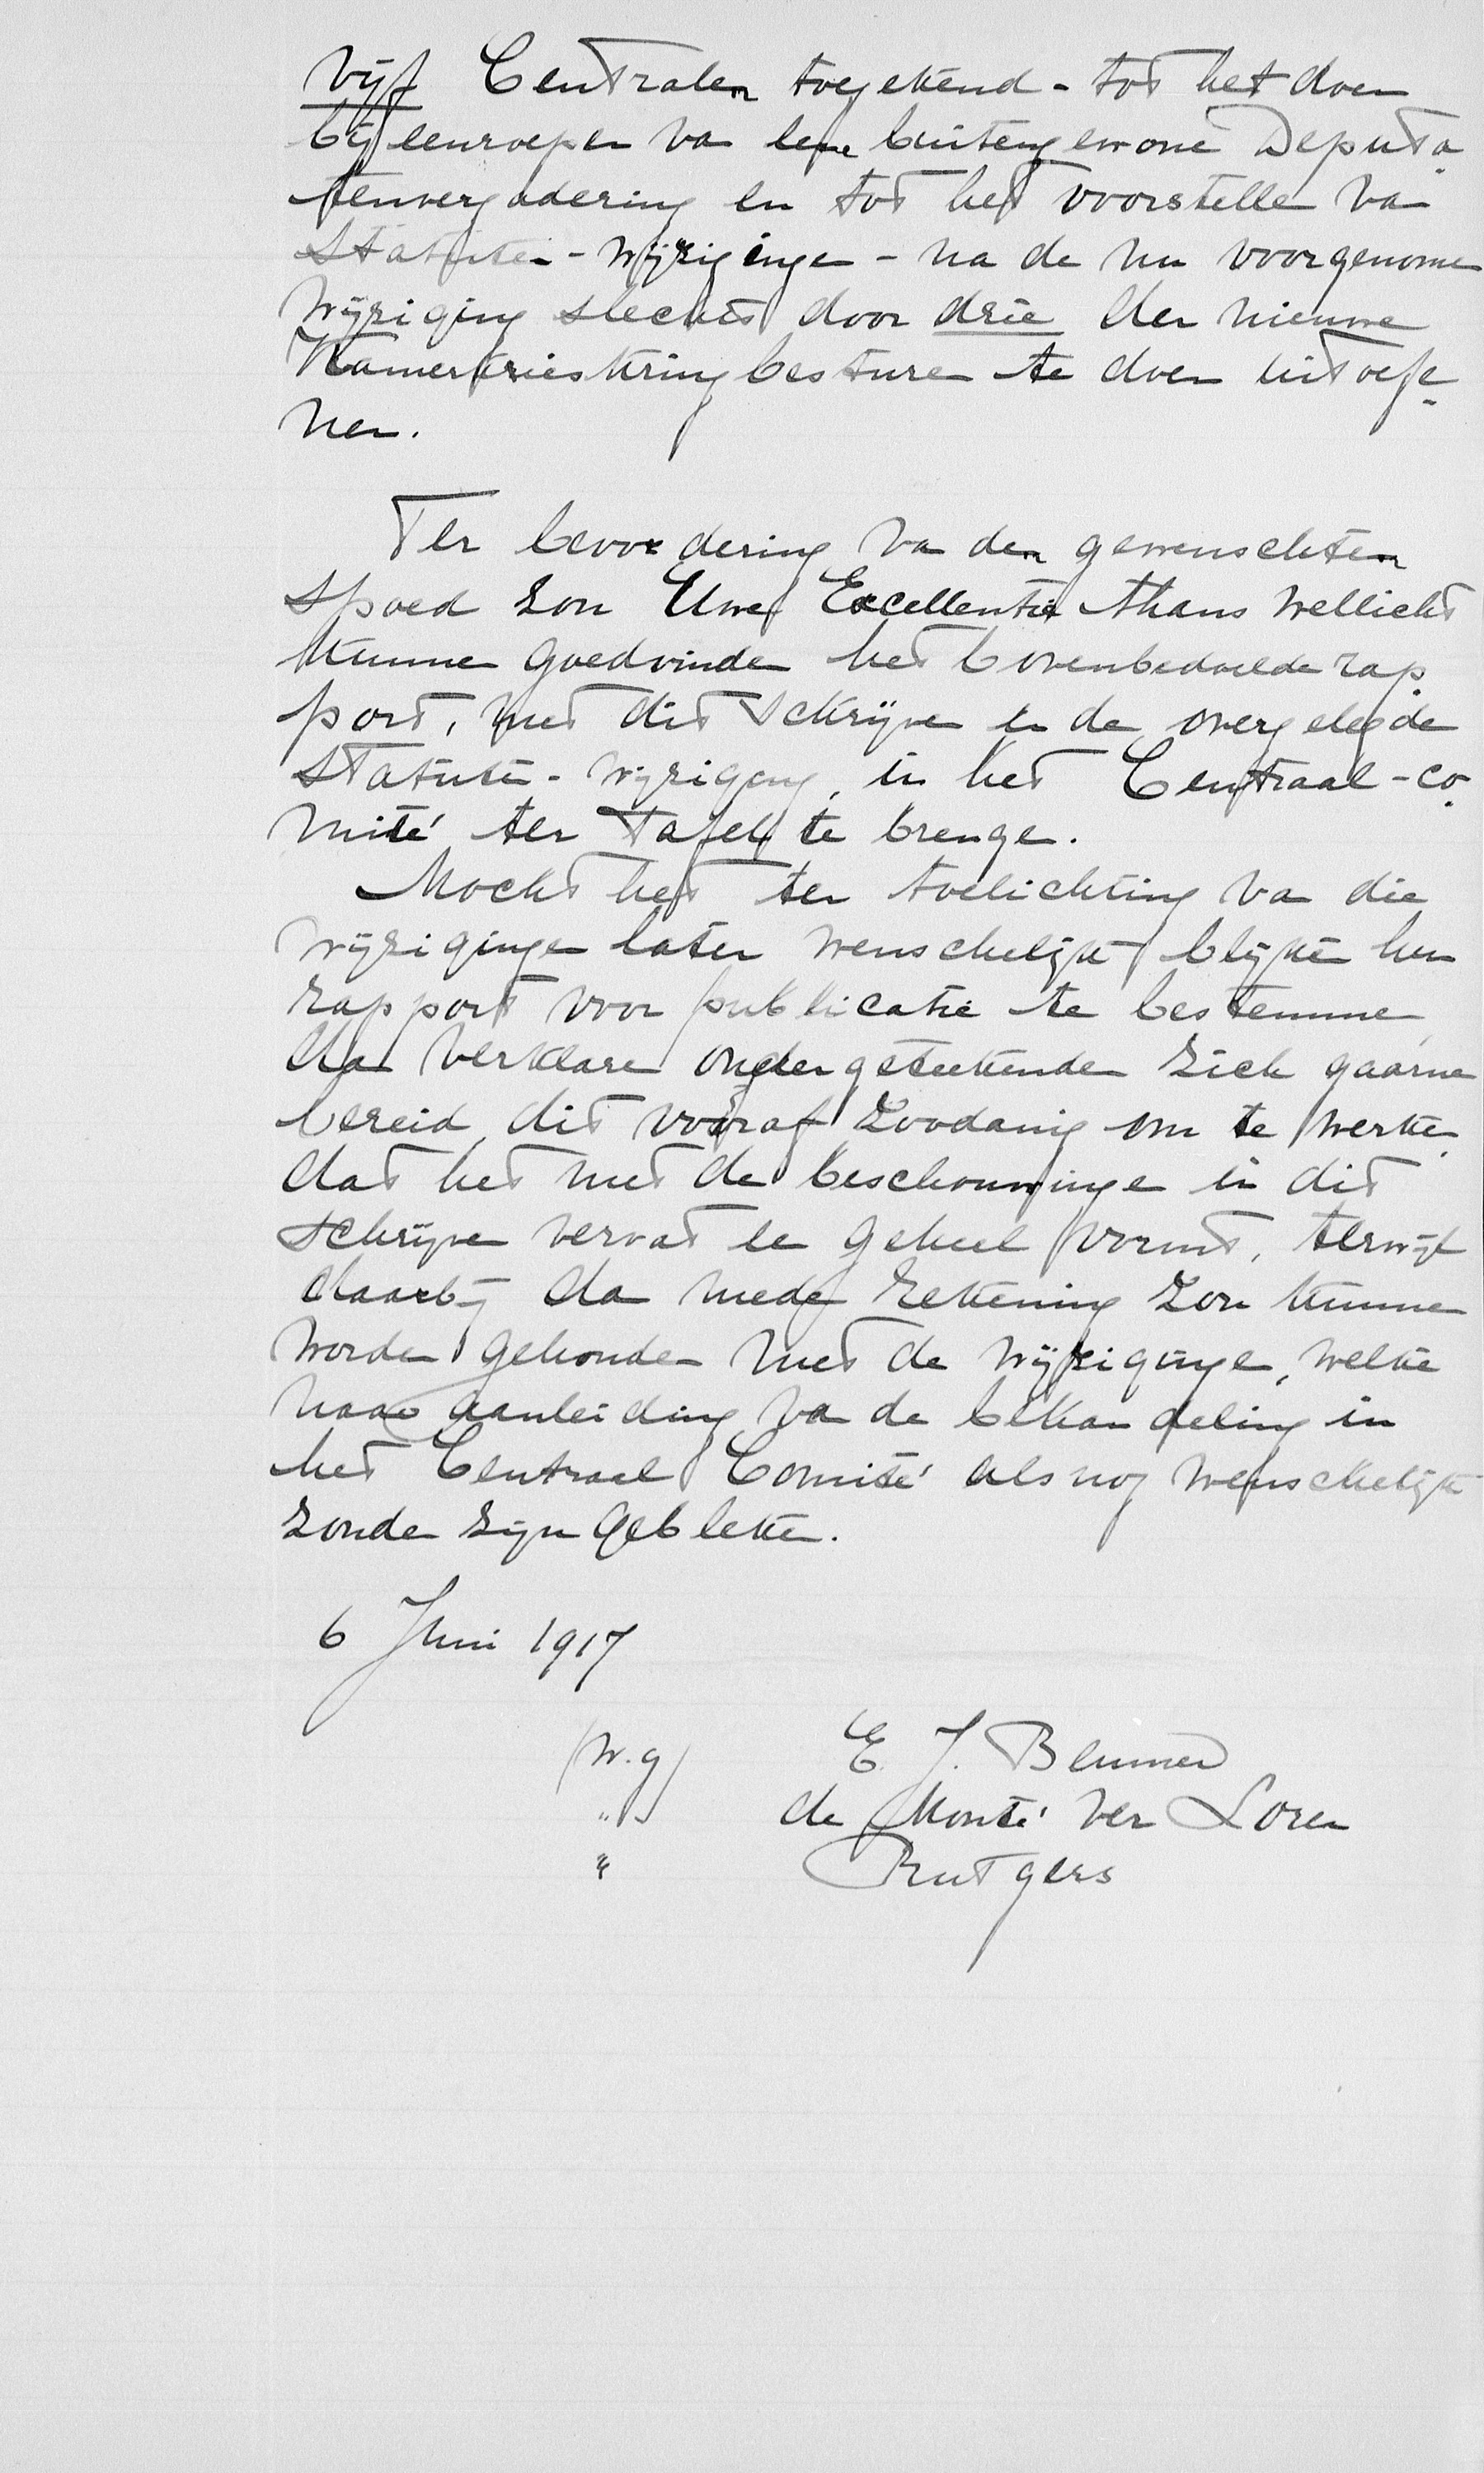 vijf Centralen toegekend - tot het doen
bijeenroepen van eene buitengewone Deputa-
tenvergadering en tot het voorstellen van
Statuten-wijzigingen - na de nu voorgenomen
wijziging slechts door drie der nieuwe
Kamerkrieskringbesturen te doen uitoefe-
nen.
Ter bevordering van den gewenschten
spoed zou Uwe Excellentie thans wellicht
kunnen goedvinden het bovenbedoelde rap-
port, met dit schrijven en de overgelegde
Statuten-wijziging, in het Centraal-co-
mité ter tafel te brengen.
Mocht het ter toelichting van die
wijzigingen later wenschelijk blijken hun
rapport voor publicatie te bestemmen
dan verklaren ondergeteekenden zich gaarne
bereid dit vooraf zoodanig om te werken
dat het met de beschouwingen in dit
schrijven vervat een geheel vormt, terwijl
daarbij dan mede rekening zou kunnen
worden gehouden met de wijzigingen, welke
naar aanleiding van de behandeling in
het Centraal Comité alsnog wenschelijk
zouden zijn gebleken.
6 Juni 1917
(w.g) E. J. Beumer
" de Monté ver Loren
" Rutgers